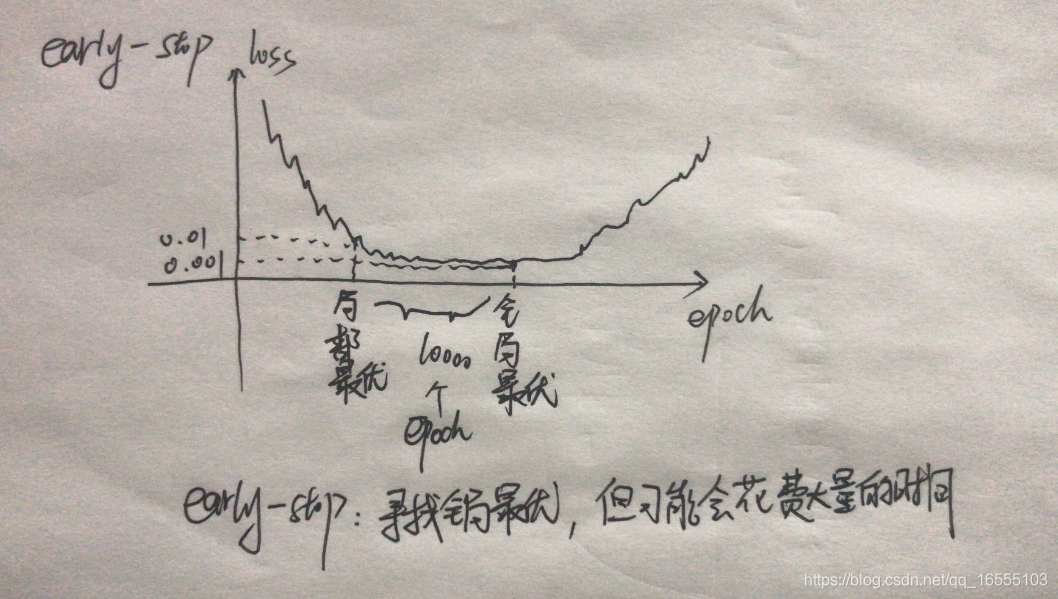 early-stop
loss
0.01
0.001
epoch
局部最优
10000个epoch
全局最优
early-stop: 寻找全局最优, 但可能会花费大量的时间
https://blog.csdn.net/qq_16555103